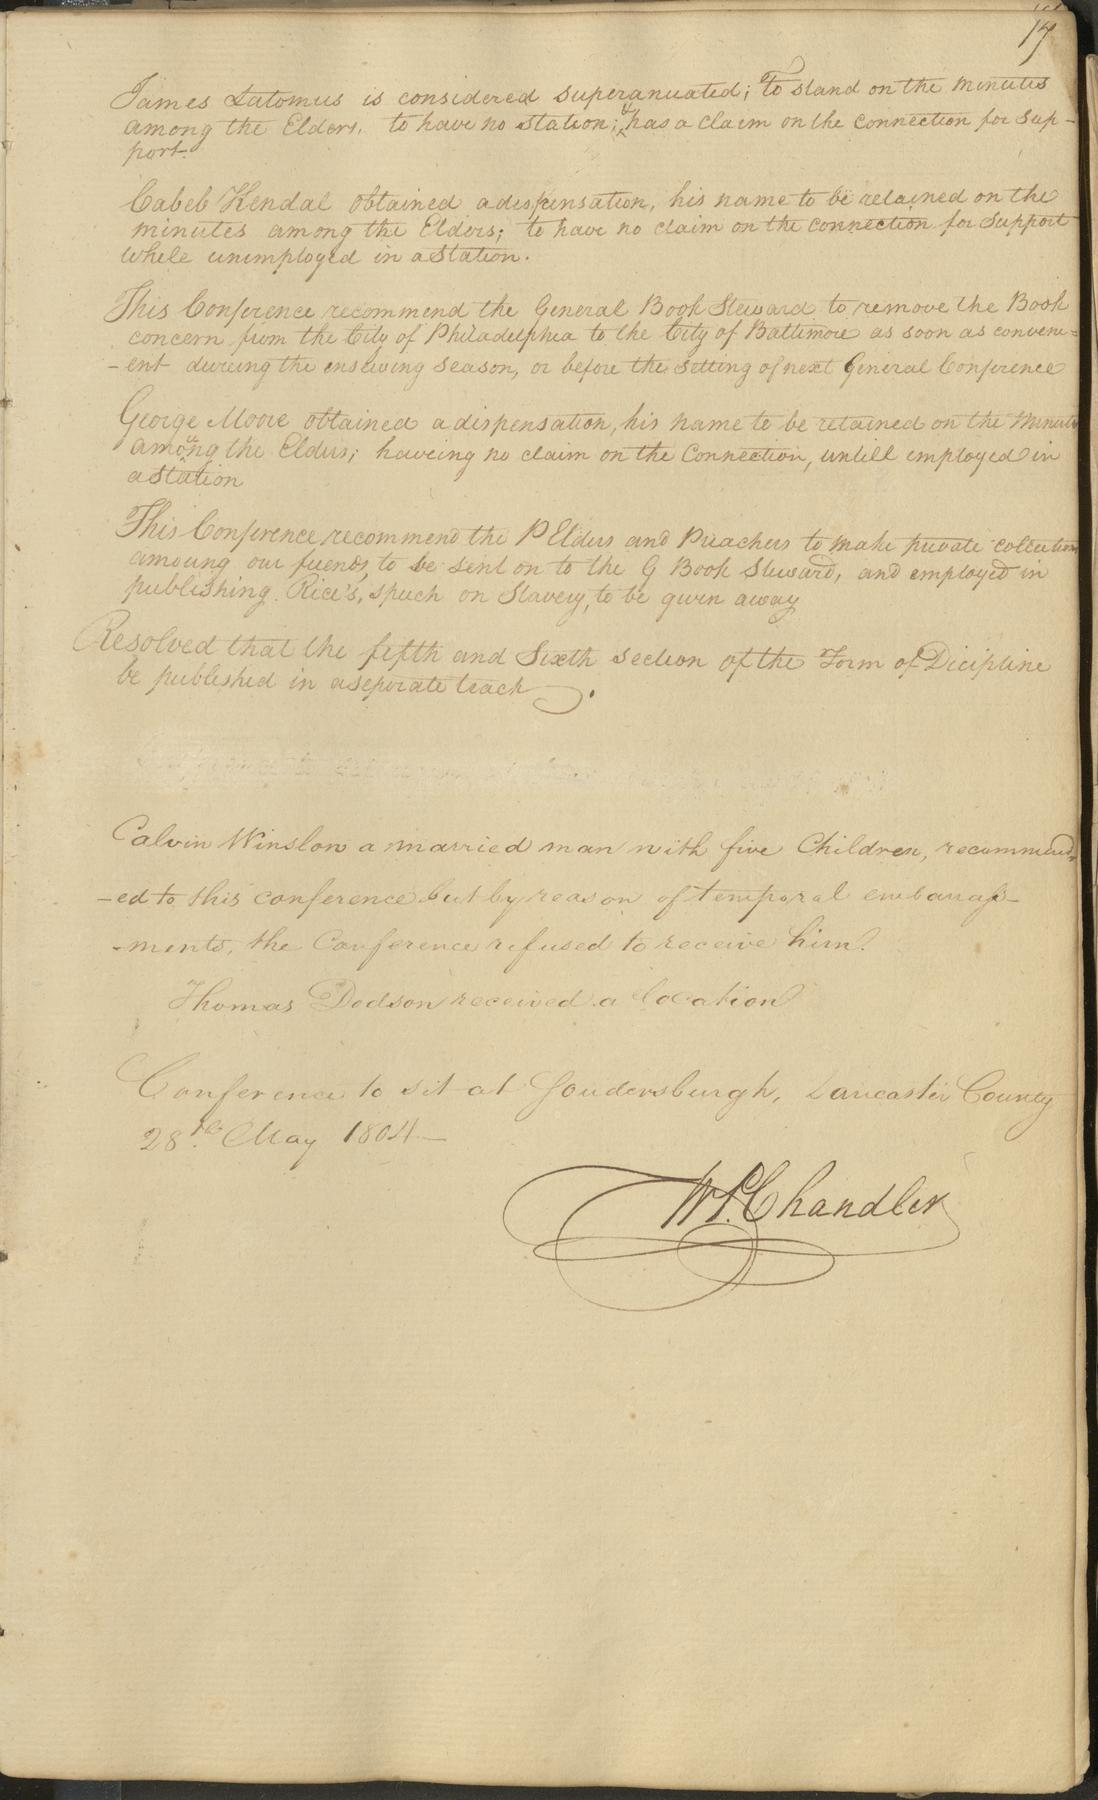 17
James Lutomus is considered superanuated; To stand on the minutes
among the Elders, to have no station; & has a claim on the connection for sup-
port.
Cabeb Kendal obtained a dispensation, his name to be retained on the
minutes among the Elders; to have no claim on the connection for support
while unimployed in a station.
This Conference recommend the General Book Steward to remove the Book
concern from the City of Philadelphia to the City of Baltimore as soon as conveni=
-ent dureing the ensewing season, or before the setting of next General Conference
George Moore obtained a dispensation, his name to be retained on the minutes
amoung the Elders; haveing no claim on the Connection, untill employed in
a station
This Conference recommend the P Elders and Preachers to make private collections
amoung our friends, to be sent on to the G Book Steward, and employed in
publishing Rice's, speech on Slavery, to be given away
Resolved that the fifth and Sixth section of the Form of Dicipline
be published in a seperate track.
Calvin Winslow a married man with five Children, recommend=
-ed to this conference but by reason of temporal embarrass-
-ments, the Conference refused to receive him.
Thomas Dodson received a location
Conference to sit at Soudersburgh, Lancaster County
28th. May 1804—
W.P. Chandler